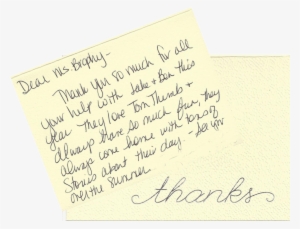 Dear Ms. Brophy -
Thank you so much for all
your help with Jake & Ben this
year. They love Tom Thumb &
always have so much fun, they
always come home with tons of
stories about their day - See you
over the summer
thanks